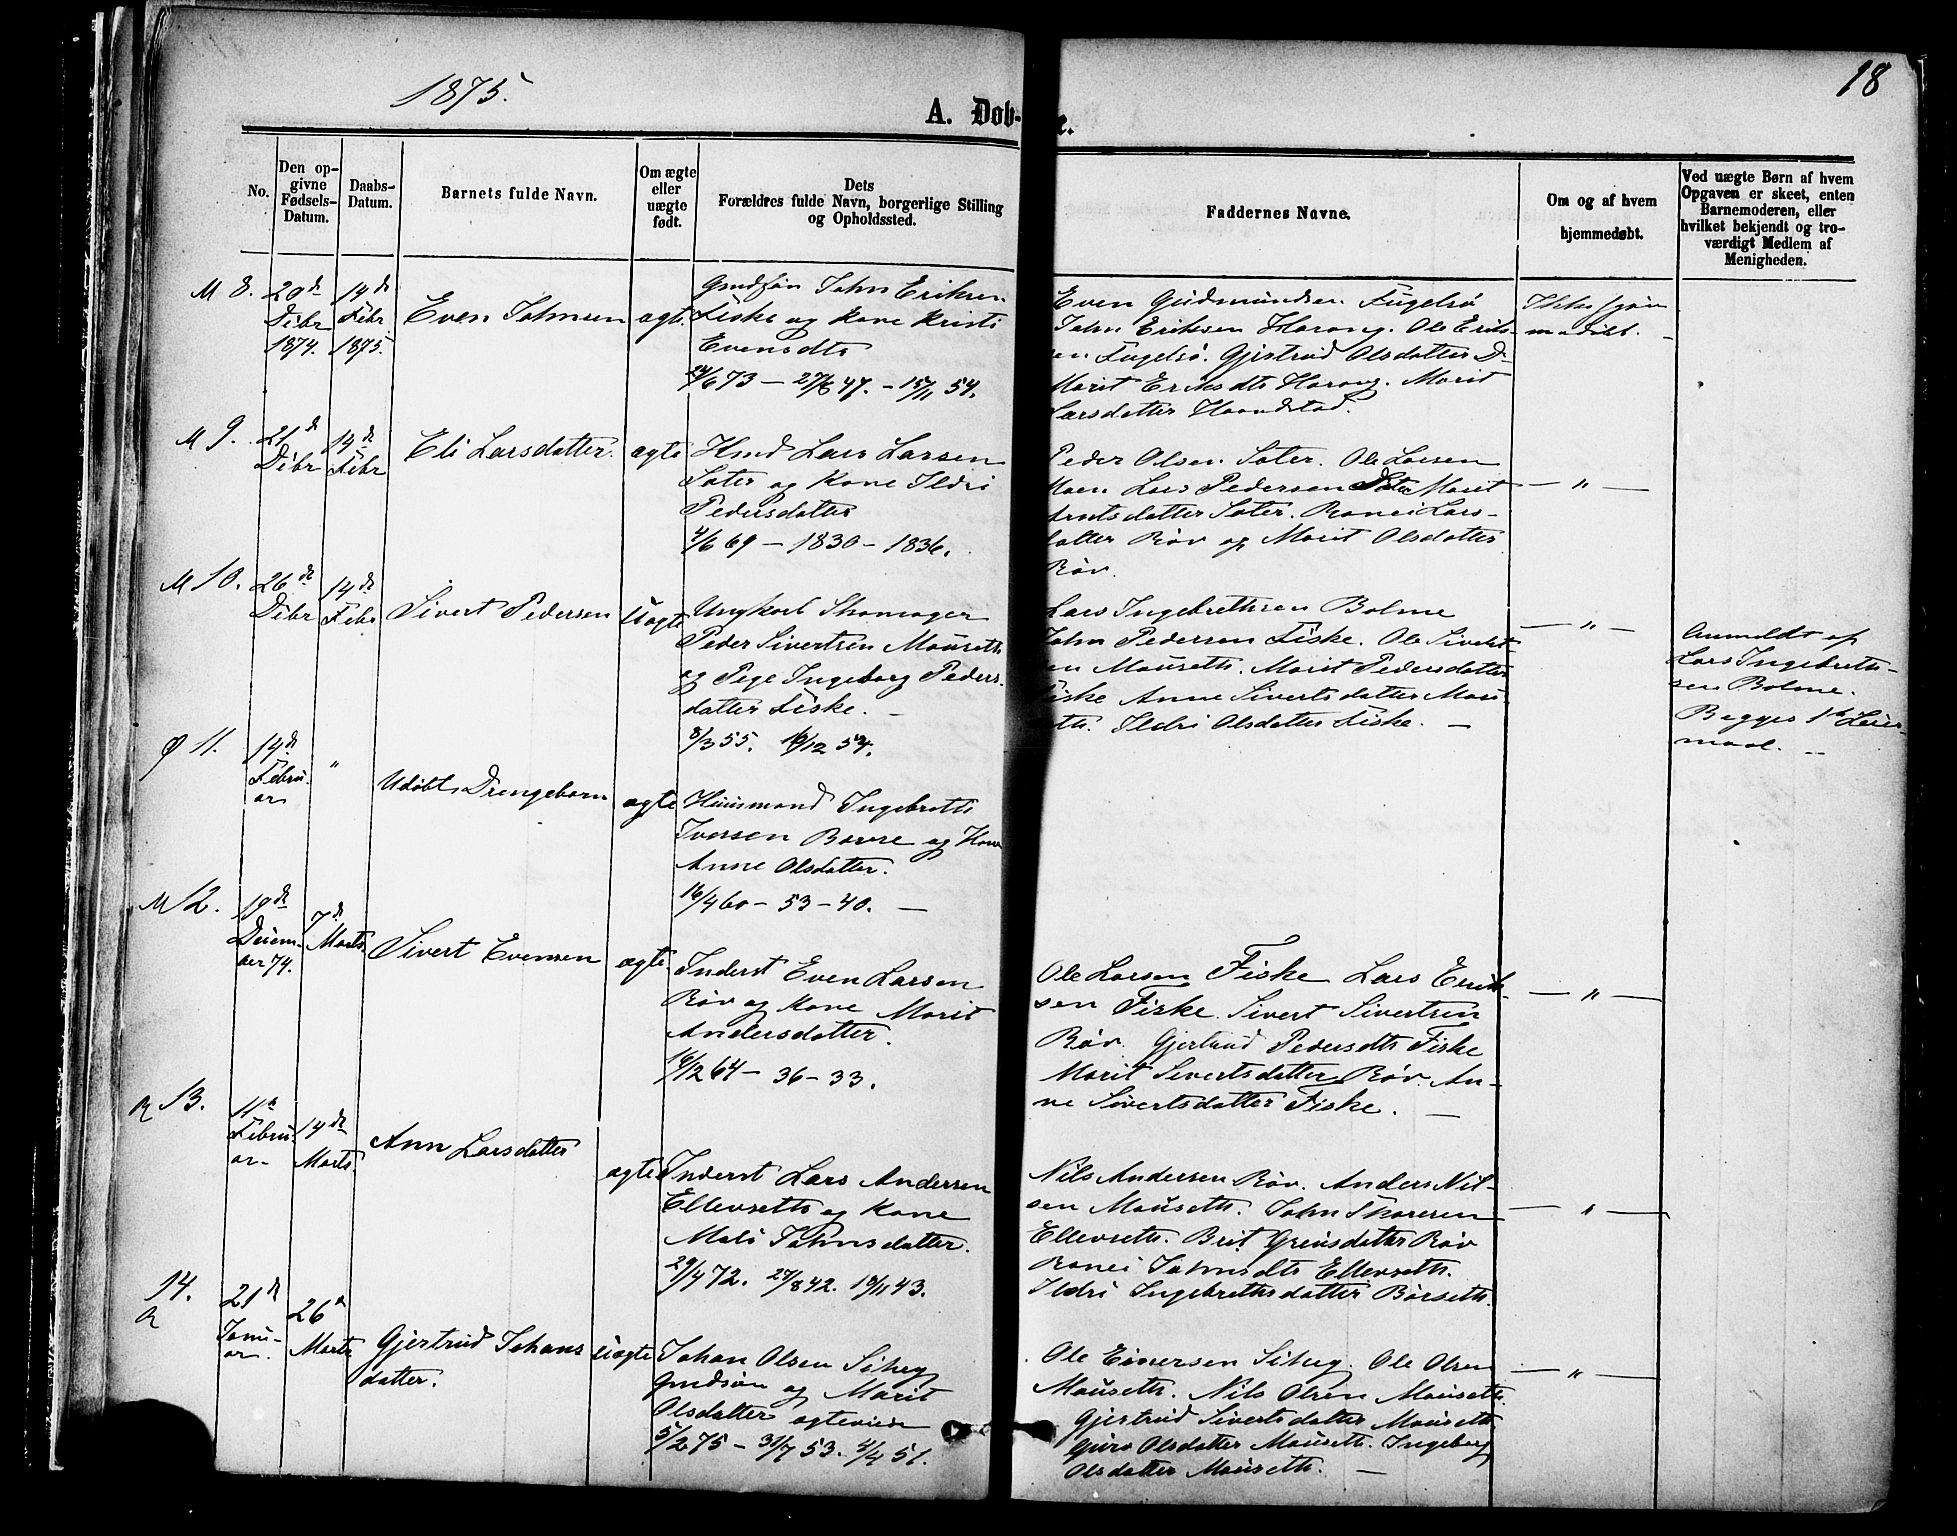 1875.
18
A. Døb-
e.
No.
Den op-
givne
Fødsels-
Datum.
Daabs-
Datum.
Barnets fulde Navn.
Om ægte
eller
uægte
født.
Dets
Forældres fulde Navn, borgerlige Stilling
og Opholdssted.
Faddernes Navne.
Om og af hvem
hjemmedøbt.
Ved uægte Børn af hvem
Opgaven er skeet, enten
Barnemoderen, eller
hvilket bekjendt og tro-
værdigt Medlem af
Menigheden.
M 8.
20de
Dcbr
1874.
14de
Febr
1875.
Even Johnsen
ægte
Gmdsøn John Eriksen
Fiske og Kone Kristi
Evensdtr
73 — 47. — 15/11 54.
Even Gudmundsen Fugelsø
John Eriksen Harang. Ole Erik-
sen Fugelsø. Gjertrud Olsdatter D—
Marit Eriksdtr Harang. Marit
Larsdatter Haandstad.
Ikke hjem
medøbt.
M 9.
21de
Dcbr
14de
Febr
Eli Larsdatter.
ægte
Hmd Lars Larsen
Sæter og Kone Ildri
Pedersdatter
4/6 69 — 1830 — 1836.
Peder Olsen Sæter. Ole Larsen
Moen Lars Pedersen Sæter Marit
Arntsdatter Sæter. Ranei Lars-
datter Røv og Marit Olsdatter
Røv.
— " —
M 10.
26de
Dcbr
14de
Febr
Sivert Pedersen
Uægte
Ungkarl Skomager
Peder Sivertsen Mauseth
og Pige Ingeborg Peders-
datter Fiske. —
8/3 55. 16/12 54.
Lars Ingebrethsen Bolme
John Pedersen Fiske. Ole Sivert-
sen Mauseth. Marit Pedersdatter
Fiske Anne Sivertsdatter Mau-
seth. Ildri Olsdatter Fiske. —
— " —
Anmeldt af
Lars Ingebreth-
sen Bolme.
Begges 1ste Leier-
maal. —
Ø 11.
14de
Febru-
ar
"
Udøbt Drengebarn
ægte
Huusmand Ingebrett
Iversen Bævre og Kone
Anne Olsdatter.
16/4 60 — 53 — 40. —
M 12.
19de
Decem-
ber 74.
7de
Marts.
Sivert Evensen
ægte
Inderst Even Larsen
Røv og Kone Marit
Andersdatter.
16/12 64 — 36 — 33.
Ole Larsen Fiske Lars Erik-
sen Fiske. Sivert Sivertsen
Røv. Gjertrud Pedersdtr Fiske
Marit Sivertsdatter Røv. An-
ne Sivertsdatter Fiske. —
— " —
R 13.
11te
Febru-
ar
14de
Marts.
Ann Larsdatter
ægte
Inderst Lars Andersen
Ellevseth og Kone
Mali Johnsdatter.
29/4 72. 27/8 42. 10/11 43.
Nils Andersen Røv. Anders Nil-
sen Mauseth. John Skoresen
Ellevseth. Brit Greisdatter Røv
Ranei Johnsdtr Ellevseth.
Ildri Ingebrethsdatter Børseth.
— " —
14.
R
21de
Janu-
ar.
26de
Marts
Gjertrud Johans
datter.
Uægte
Johan Olsen Sihey
Gmdsøn og Marit
Olsdatter ægteviede
5/2 75 — 31/7 53. 4/4 51.
Ole Einersen Sihey. Ole Olsen
Mauseth. Nils Olsen Mauseth.
Gjertrud Sivertsdatter Mauseth
Guro Olsdatter Mauseth. Ingeborg
Olsdatter Mauseth. —
— " —